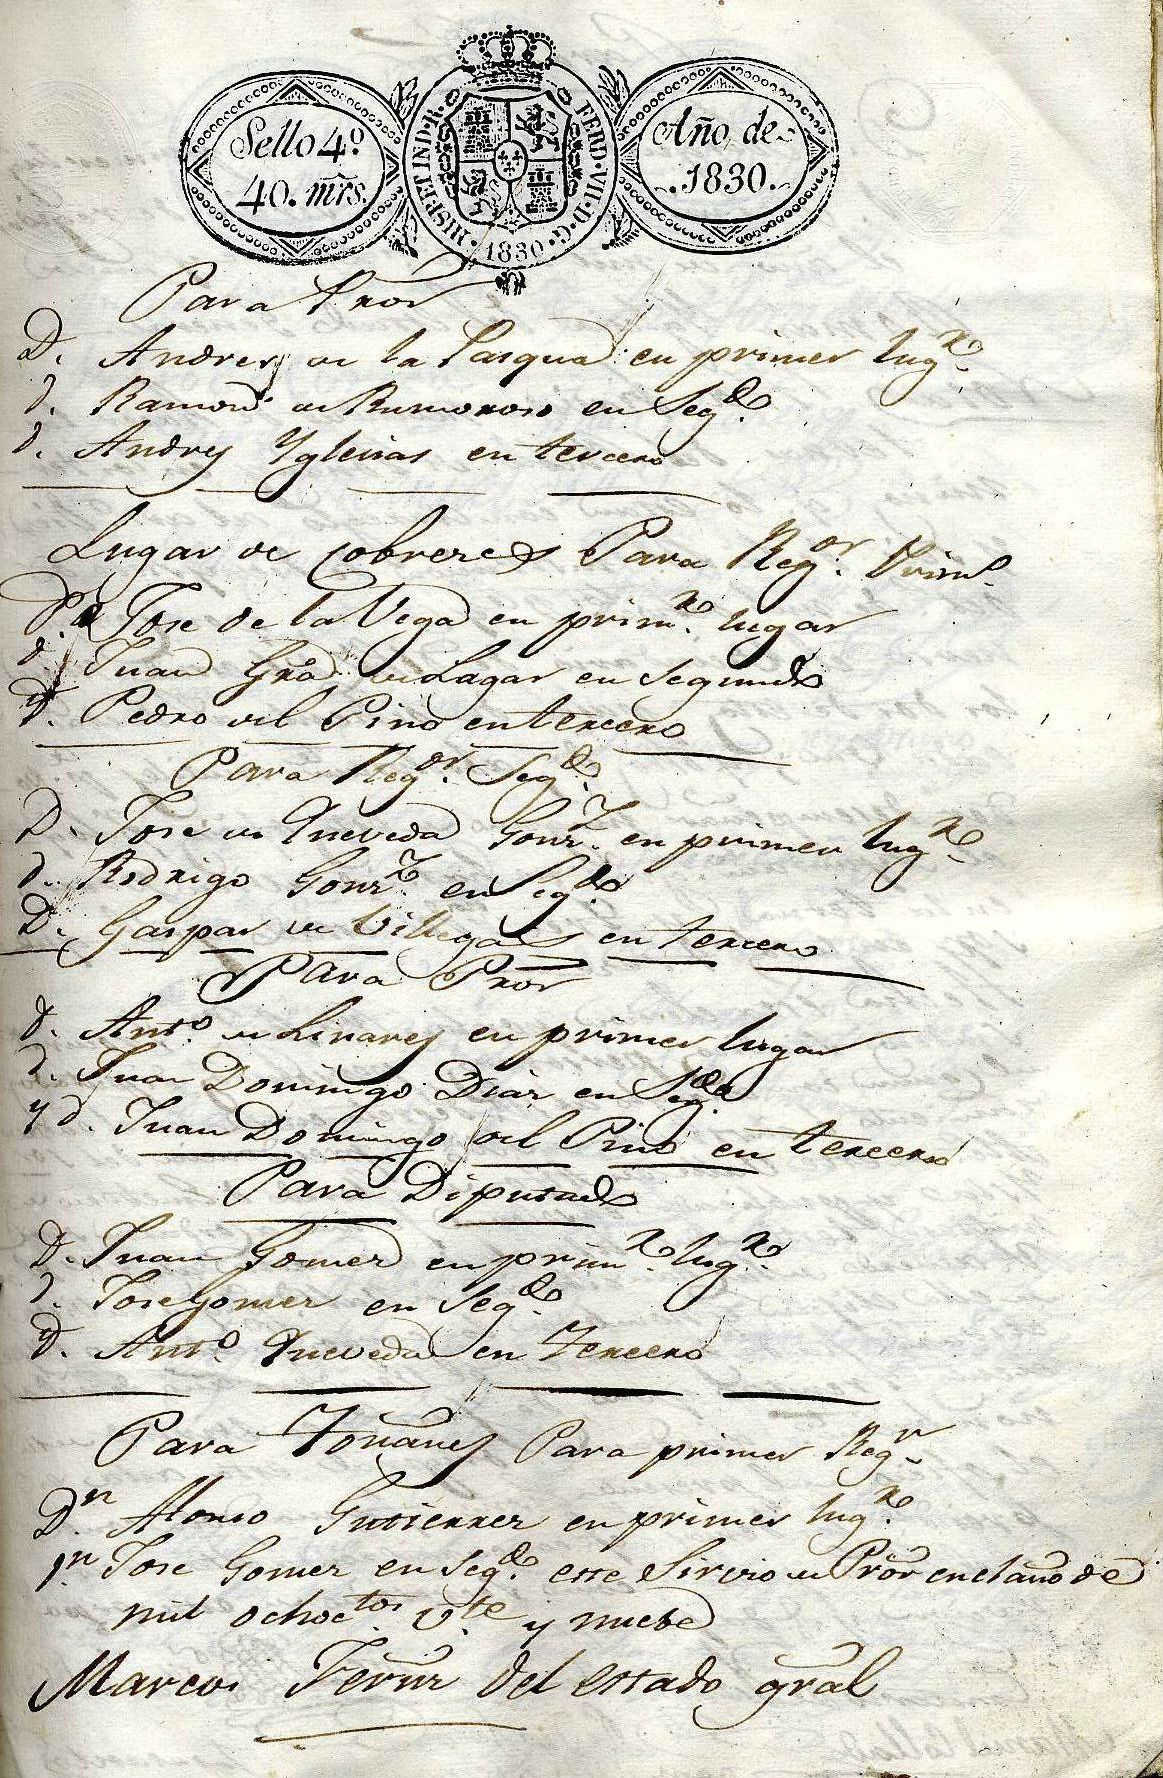 Sello 4.º
40. mrs.
HISP. ET IND. R.
FERD. VII. D. G.
1830
Año de
1830.
Para Pror
D. Andres de la Pasqua en primer lugr.
d. Ramon de Rumoroso en Segdo.
d. Andres Yglesias en tercero
Lugar de Cobreces Para Regor. Prim.
D. Jose de la Vega en primr. lugar
d. Juan Gra de Lagar en segundo
D. Pedro del Pino en tercero
Para Regor. Segdo.
D. Jose de Queveda Gonz. en primer lugr.
d. Rodrigo Gonz. en Segdo
D. Gaspar de Villegas en tercero
Para Pror
d. Anto. de Linares en primer lugar
d. Juan Domingo Diaz en Segdo
y d. Juan Domingo del Pino en tercero
Para Diputado
D. Juan Gomez en primr. lugr.
d. Jose Gomez en Segdo.
D. Anto. Queveda en Tercero
Para Toñanes Para primer Regr.
Dn. Alonso Gutierrez en primer lugr.
Dn. Jose Gomez en Segdo. este Sirvio de Pror en el año de
mil ochoctos. vte. y nuebe
Marcos Fernz del estado gral